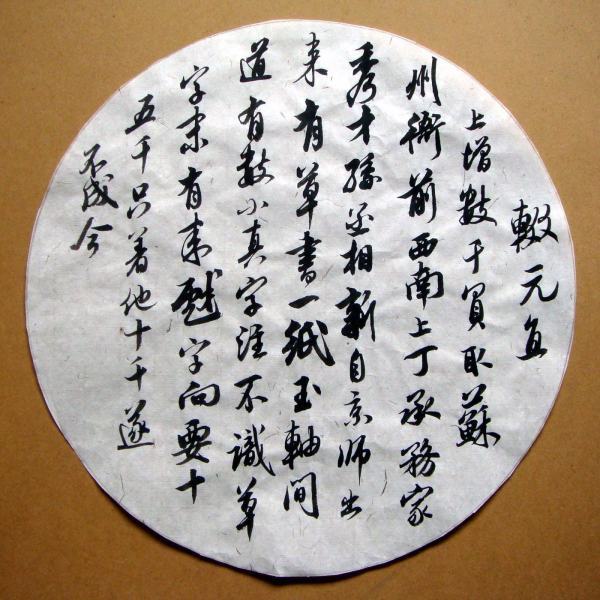 輙元直
上增數千買取蘇
州衙前西南上丁承務家
秀才孫丞相新自京師出
來有草書一紙玉軸間
道有數小真字注不識草
字末有來戲字向要十
五千只著他十千遂
不成今